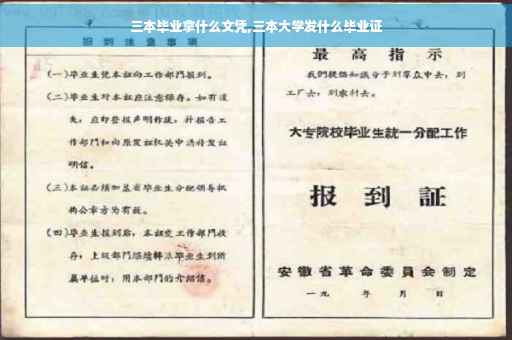 三本毕业拿什么文凭,三本大学发什么毕业证
报到注意事项
(一)毕业生凭本证向工作部門报到。
(二)毕业生对本证应注意保存。如有遺
失,应即登报声明作廢,并报告工
作部門和向原发证机关申請补发证
明信。
(三)本证必須加盖省毕业生分配領导机
构公章方为有效。
(四)毕业生报到后,本证交工作部門收
存;上級部門
属单位时,用本部門的介紹信。
最高指示
我們提倡知識分子到羣众中去,到
工厂去,到农村去。
大专院校毕业生統一分配工作
报到証
安徽省革命委員会制定
一九 年 月 日